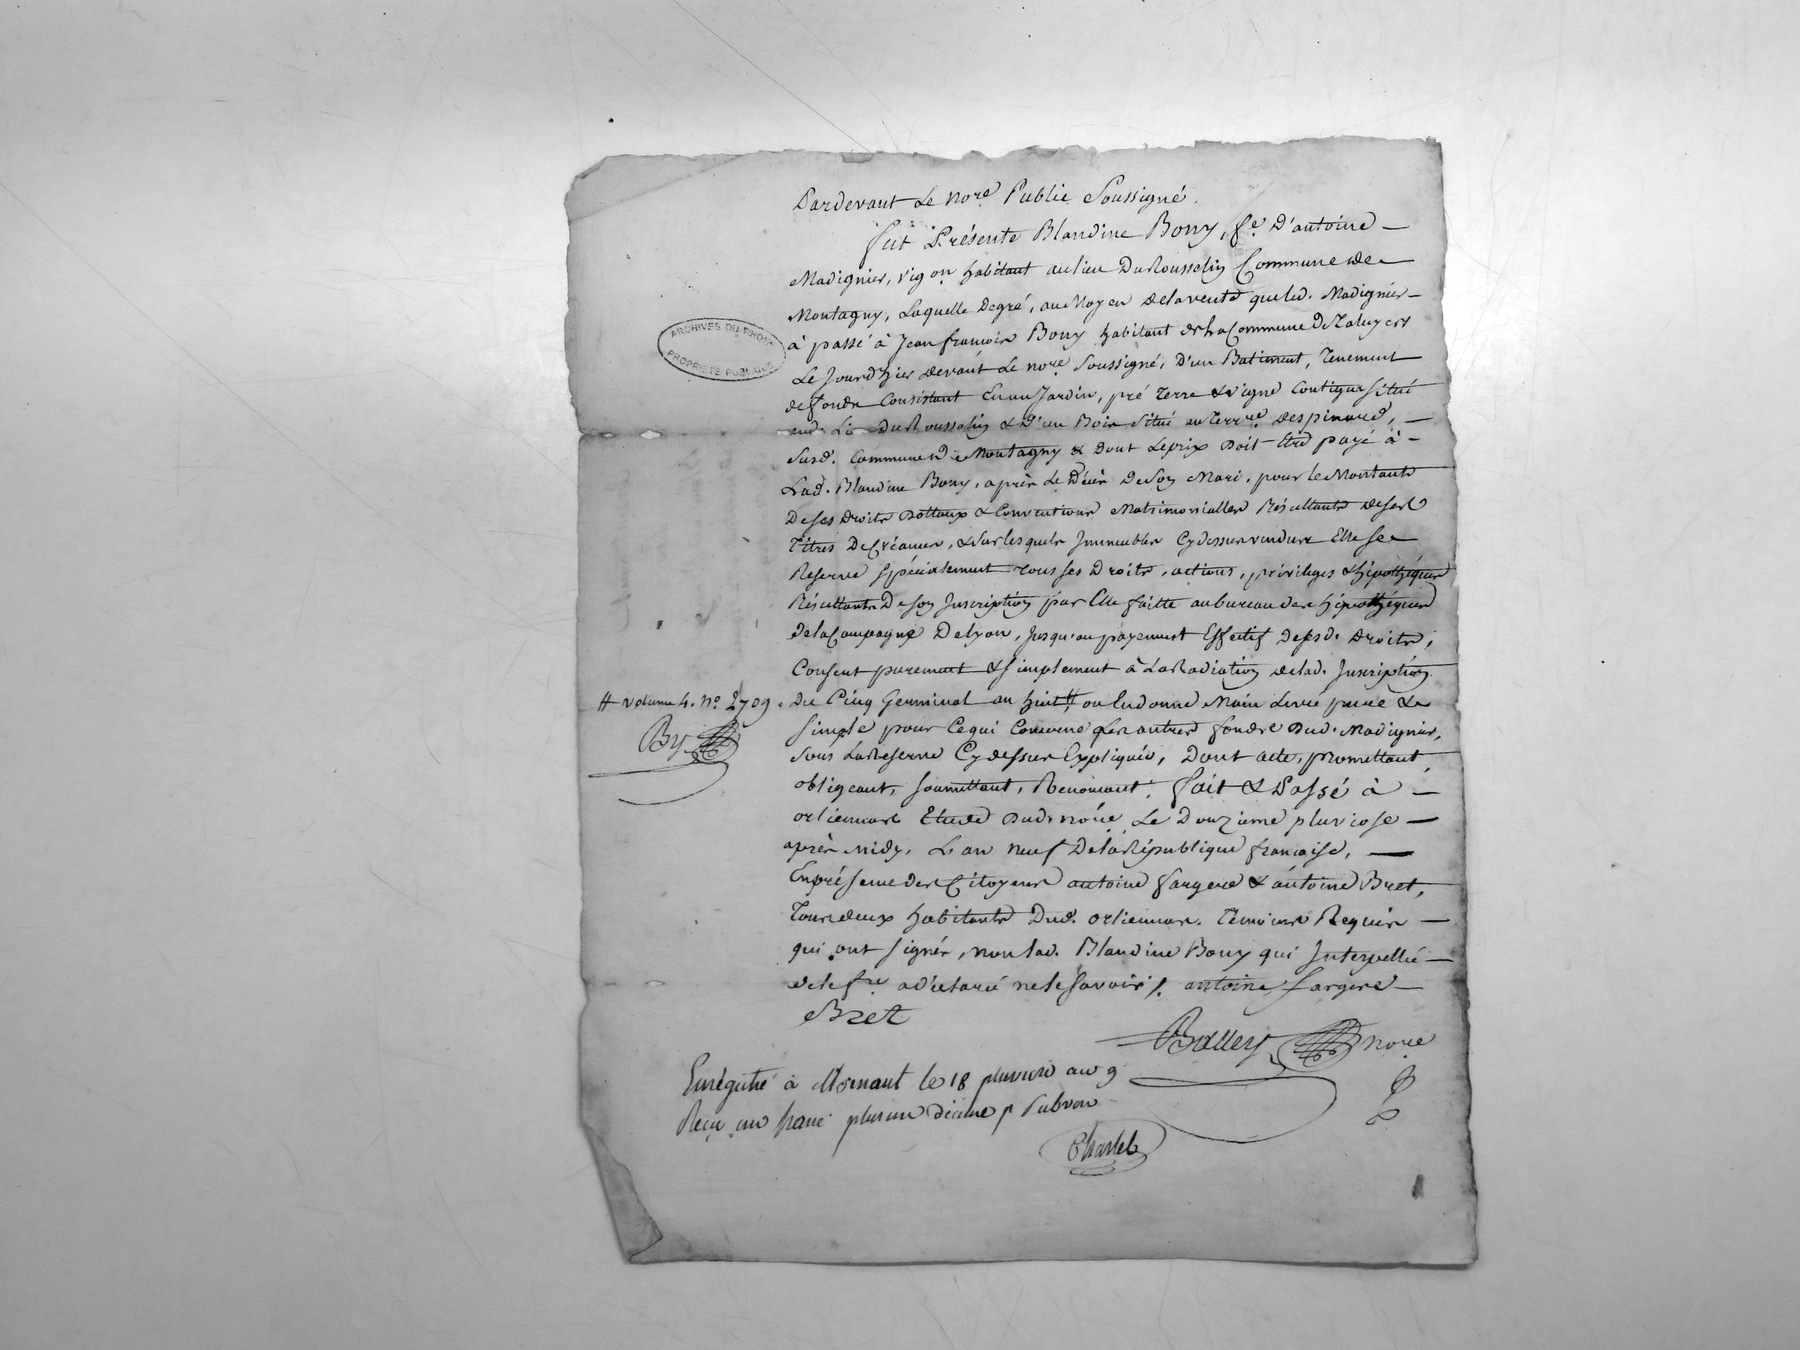 Pardevant Le nore Public Soussigné.
fut Présente Blandine Bony, fe. D'antoine
Madignier, vigon habitant au lieu Du Rousselin Commune de
Montagny, Laquelle Degré, au Moyen de la vente que led. Madignier
à passé à Jean françois Bony habitant de la Commune de Taluyers
Le jour d'hier devant Le nore Soussigné, D'un Batiment, Tenement
de fonds Consistant En un Jardin, pré Terre & vigne Contigus Situé
aud. Lieu Du Rousselin & D'un Bois Situé au Terrre. Despinard,
Susd. Commune de Montagny & Dont Le prix Doit être payé à
Lad. Blandine Bony, après Le Décès De Son Mari, pour le Montant
De Ses Droits Dottaux & Conventions Matrimonialles Résultants de Ses
Titres De Créances, & Sur lesquels Immeubles Cy dessus vendus Elle Se
Reserve Spécialement Tous Ses Droits, actions, privileges & hipothéques
Résultants De Son Inscription par Elle faitte au bureau des hipothéques
de la Campagne De Lyon, Jusqu'au payement Effectif desd. Droits,
Consent purement & Simplement à La Radiation de lad. Inscription
# volume 4. no. 2709.
Du Cinq Germinal an huit #, ou En donne Main Levée pure &
Simple pour Ce qui Concerne Les autres fonds Dud. Madignier,
Sous La Reserve Cy dessus Expliquée, Dont acte, promettant
obligeant, Soumettant, Renonçant, fait & Passé à
orlienas Etude Dud. nore. Le Douzieme pluviose
après midy, L'an neuf De la République française,
En présence des Citoyens antoine fargere & antoine Bret,
Tous deux habitants Dud. orlienas. Témoins Requis
qui ont Signés, non lad. Blandine Bony qui Interpellée
de le fre a déclaré ne le Savoir /. antoine fargere
Bret
Balley nore
Enrégitré à Mornant le 18 pluviose an 9
Reçu un franc plus un décime p Subvon
Chastel
ARCHIVES DU RHONE
PROPRIÉTÉ PUBLIQUE